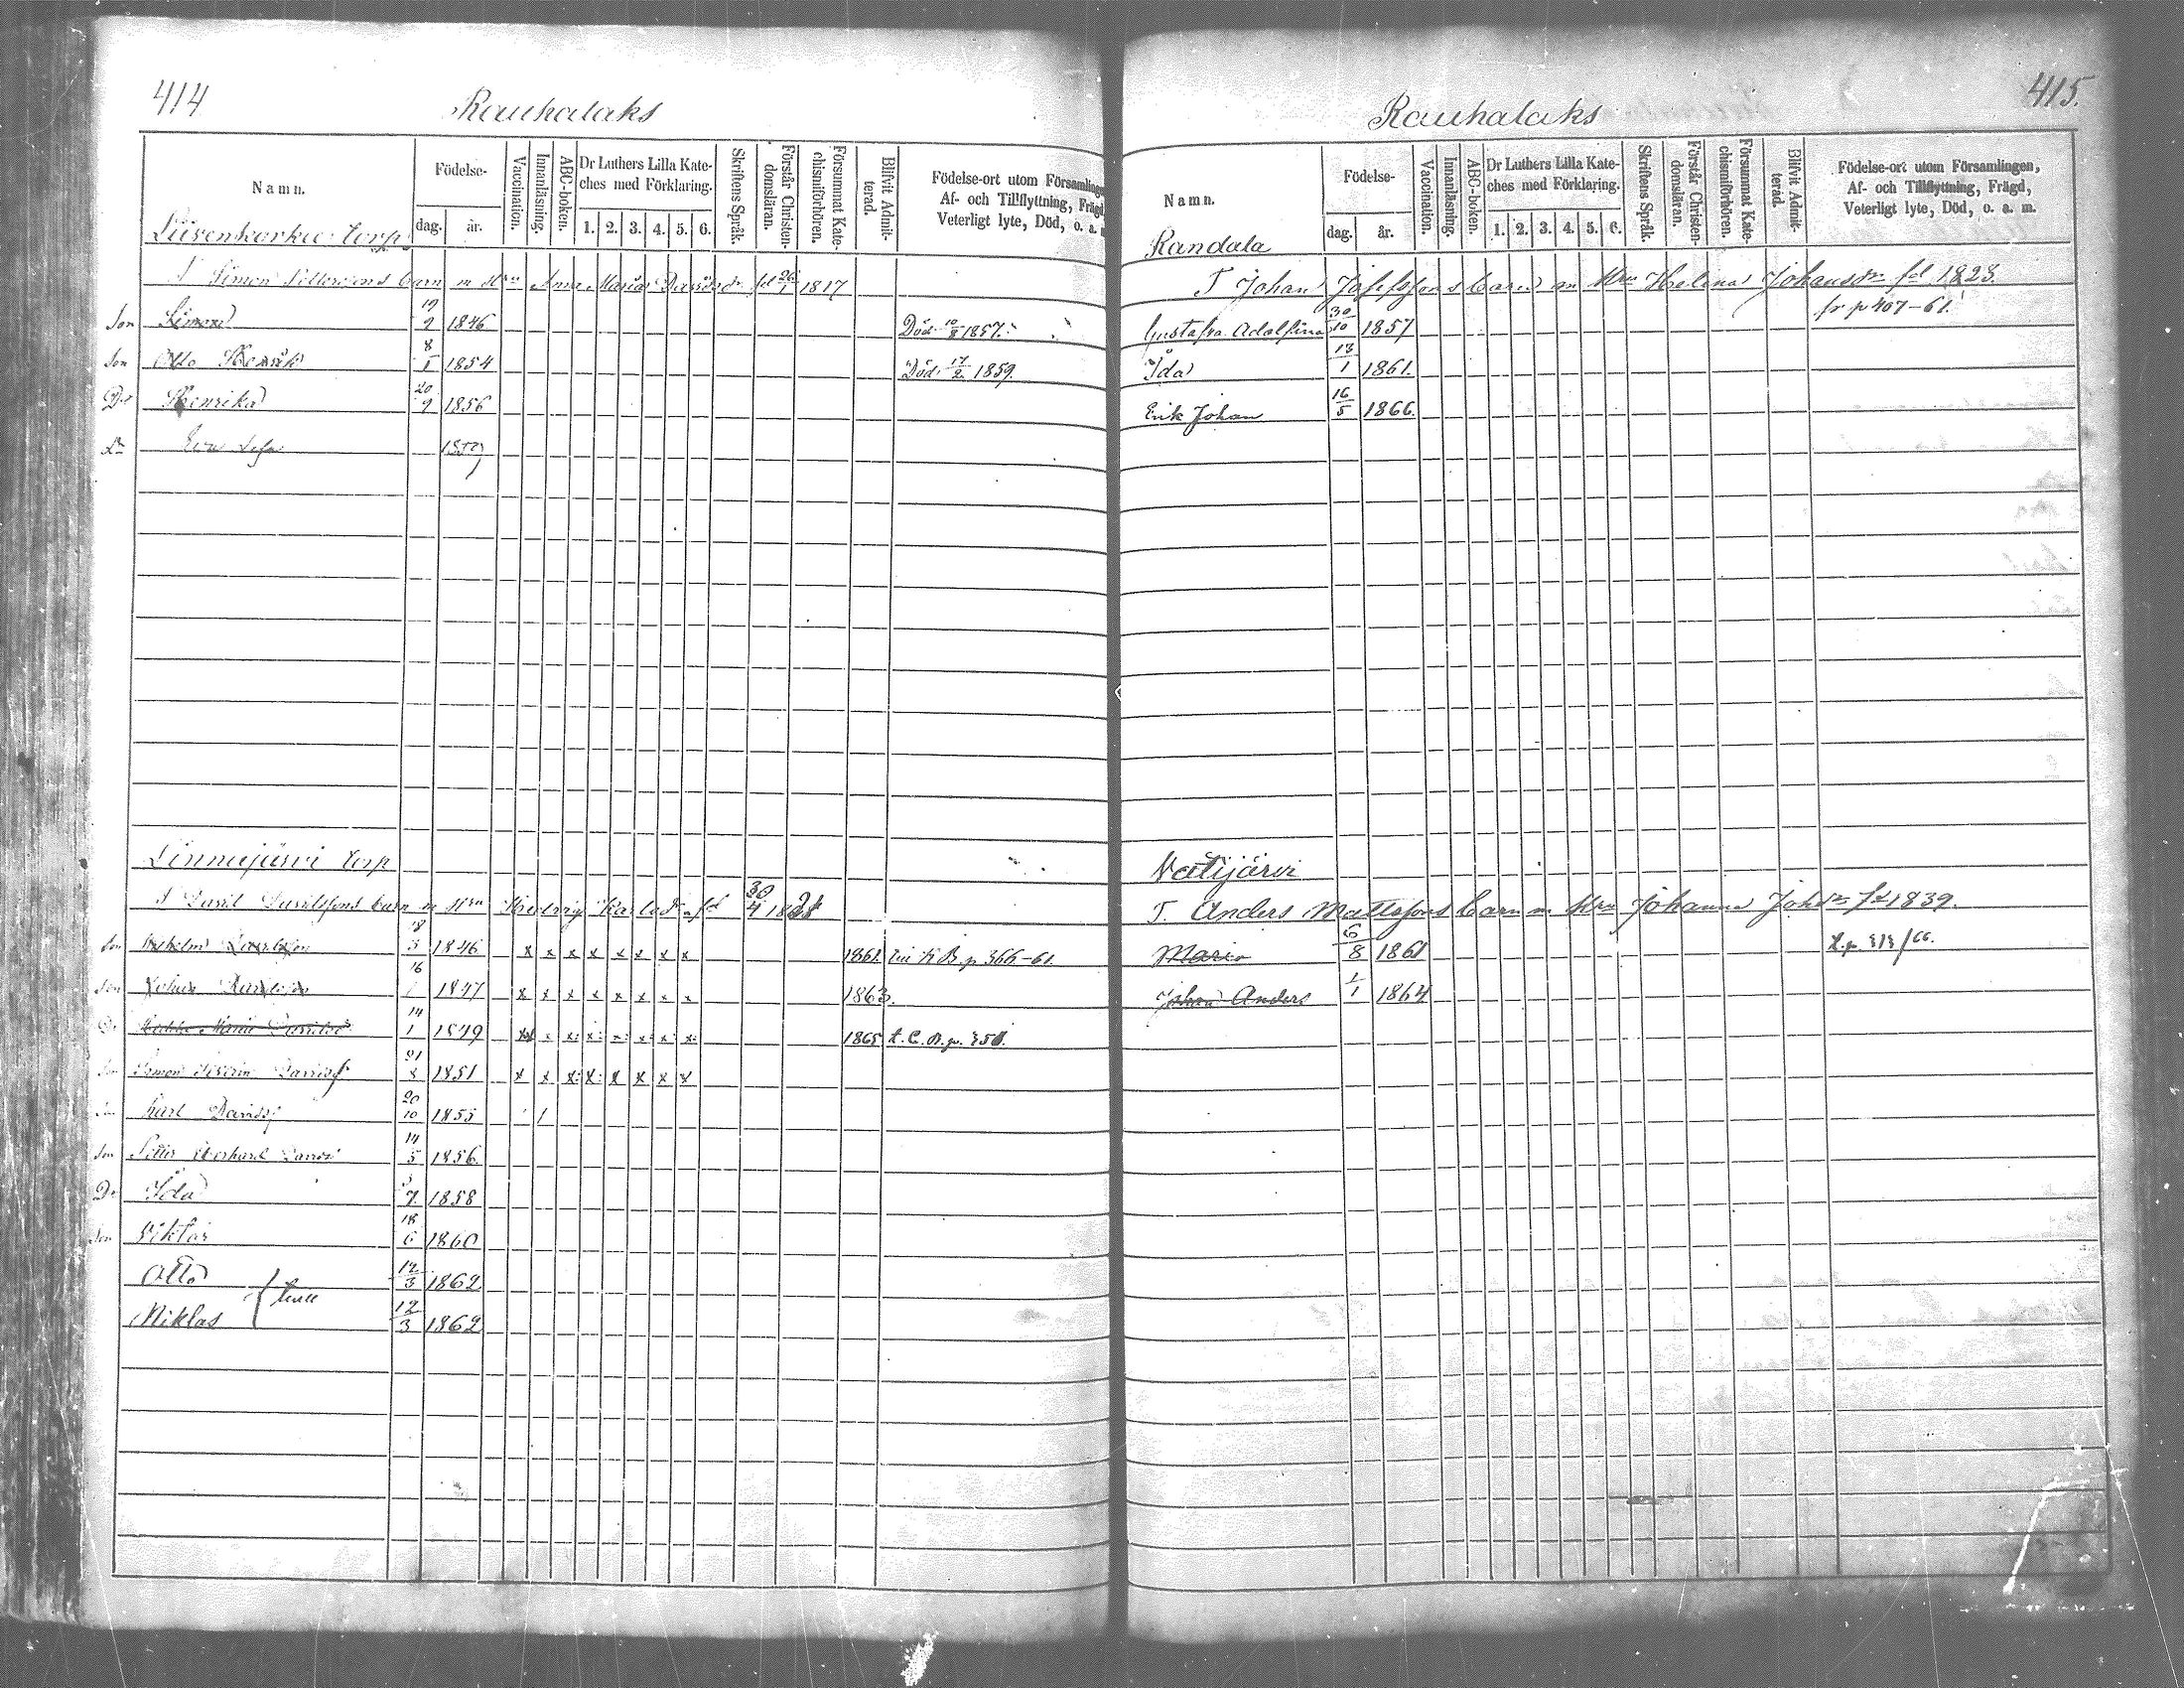 414
Rauhalaks
Namn.
Födelse-
dag.
år.
Vaccination.
Innanläsning.
ABC-boken.
Dr Luthers Lilla Kate-
ches med Förklaring.
1. 2. 3. 4. 5. 6.
Skriftens Språk.
Förstår Christen-
domsläran.
Försummat Kate-
chismiförhören.
Blifvit Admit-
terad.
Födelse-ort utom Församlingen
Af- och Tillflyttning, Frägd,
Veterligt lyte, Död, o. a. m
torp
T Simon Petterssons barn m Hru Anna Maria Davidsdr fd 26/1 1817
Son Simon 19/9 1846 Död 10/8 1857.
Son Otto Henrik 8/1 1854 Död 17/2 1859.
Dr Henrika 20/9 1856
Dr Eva 1859
Linnajärvi torp
T David Davidssons barn m Hru Hedvig Karlsdr fd 30/4 1828
Son Wilhelm Davidsson 18/3 1846 x x x x x x x x 1861 K B. p 366-61.
Son Johan Davidson 16 1847 x x x x x x x x 1863.
Dr Maria Davidsdr 14/1 1849 x x x x x x x x 1865 t. C. B. p. 351.
Son Simon Davidss 21 1851 x x x x x x x x
Son Karl Davidss 20/10 1855
Son Petter Gerhard Davids 14/5 1856.
Dr Ida 7 1858
Son Viktor 18/6 1860
Otto 12/3 1862
Niklas 12/3 1862
415.
Rauhalaks
Namn.
Födelse-
dag.
år.
Vaccination.
Innanläsning.
ABC-boken.
Dr Luthers Lilla Kate-
ches med Förklaring.
1. 2. 3. 4. 5. 6.
Skriftens Språk.
Förstår Christen-
domsläran.
Försummat Kate-
chismiförhören.
Blifvit Admit-
terad.
Födelse-ort utom Församlingen,
Af- och Tillflyttning, Frägd,
Veterligt lyte, Död, o. a. m.
Randala
T Johan Josefssons barn m Hru Helena Johansdr fd 1828.
fr p 407-61.
Gustafva Adolfina 30/10 1857
Ida 13/1 1861.
Erik Johan 16/5 1866.
Natijärvi
T. Anders Mattssons barn m Hru Johanna Johsdr fd 1839.
Maria 6/8 1861 t.p. 313/66.
Johan Anders 1/1 1864